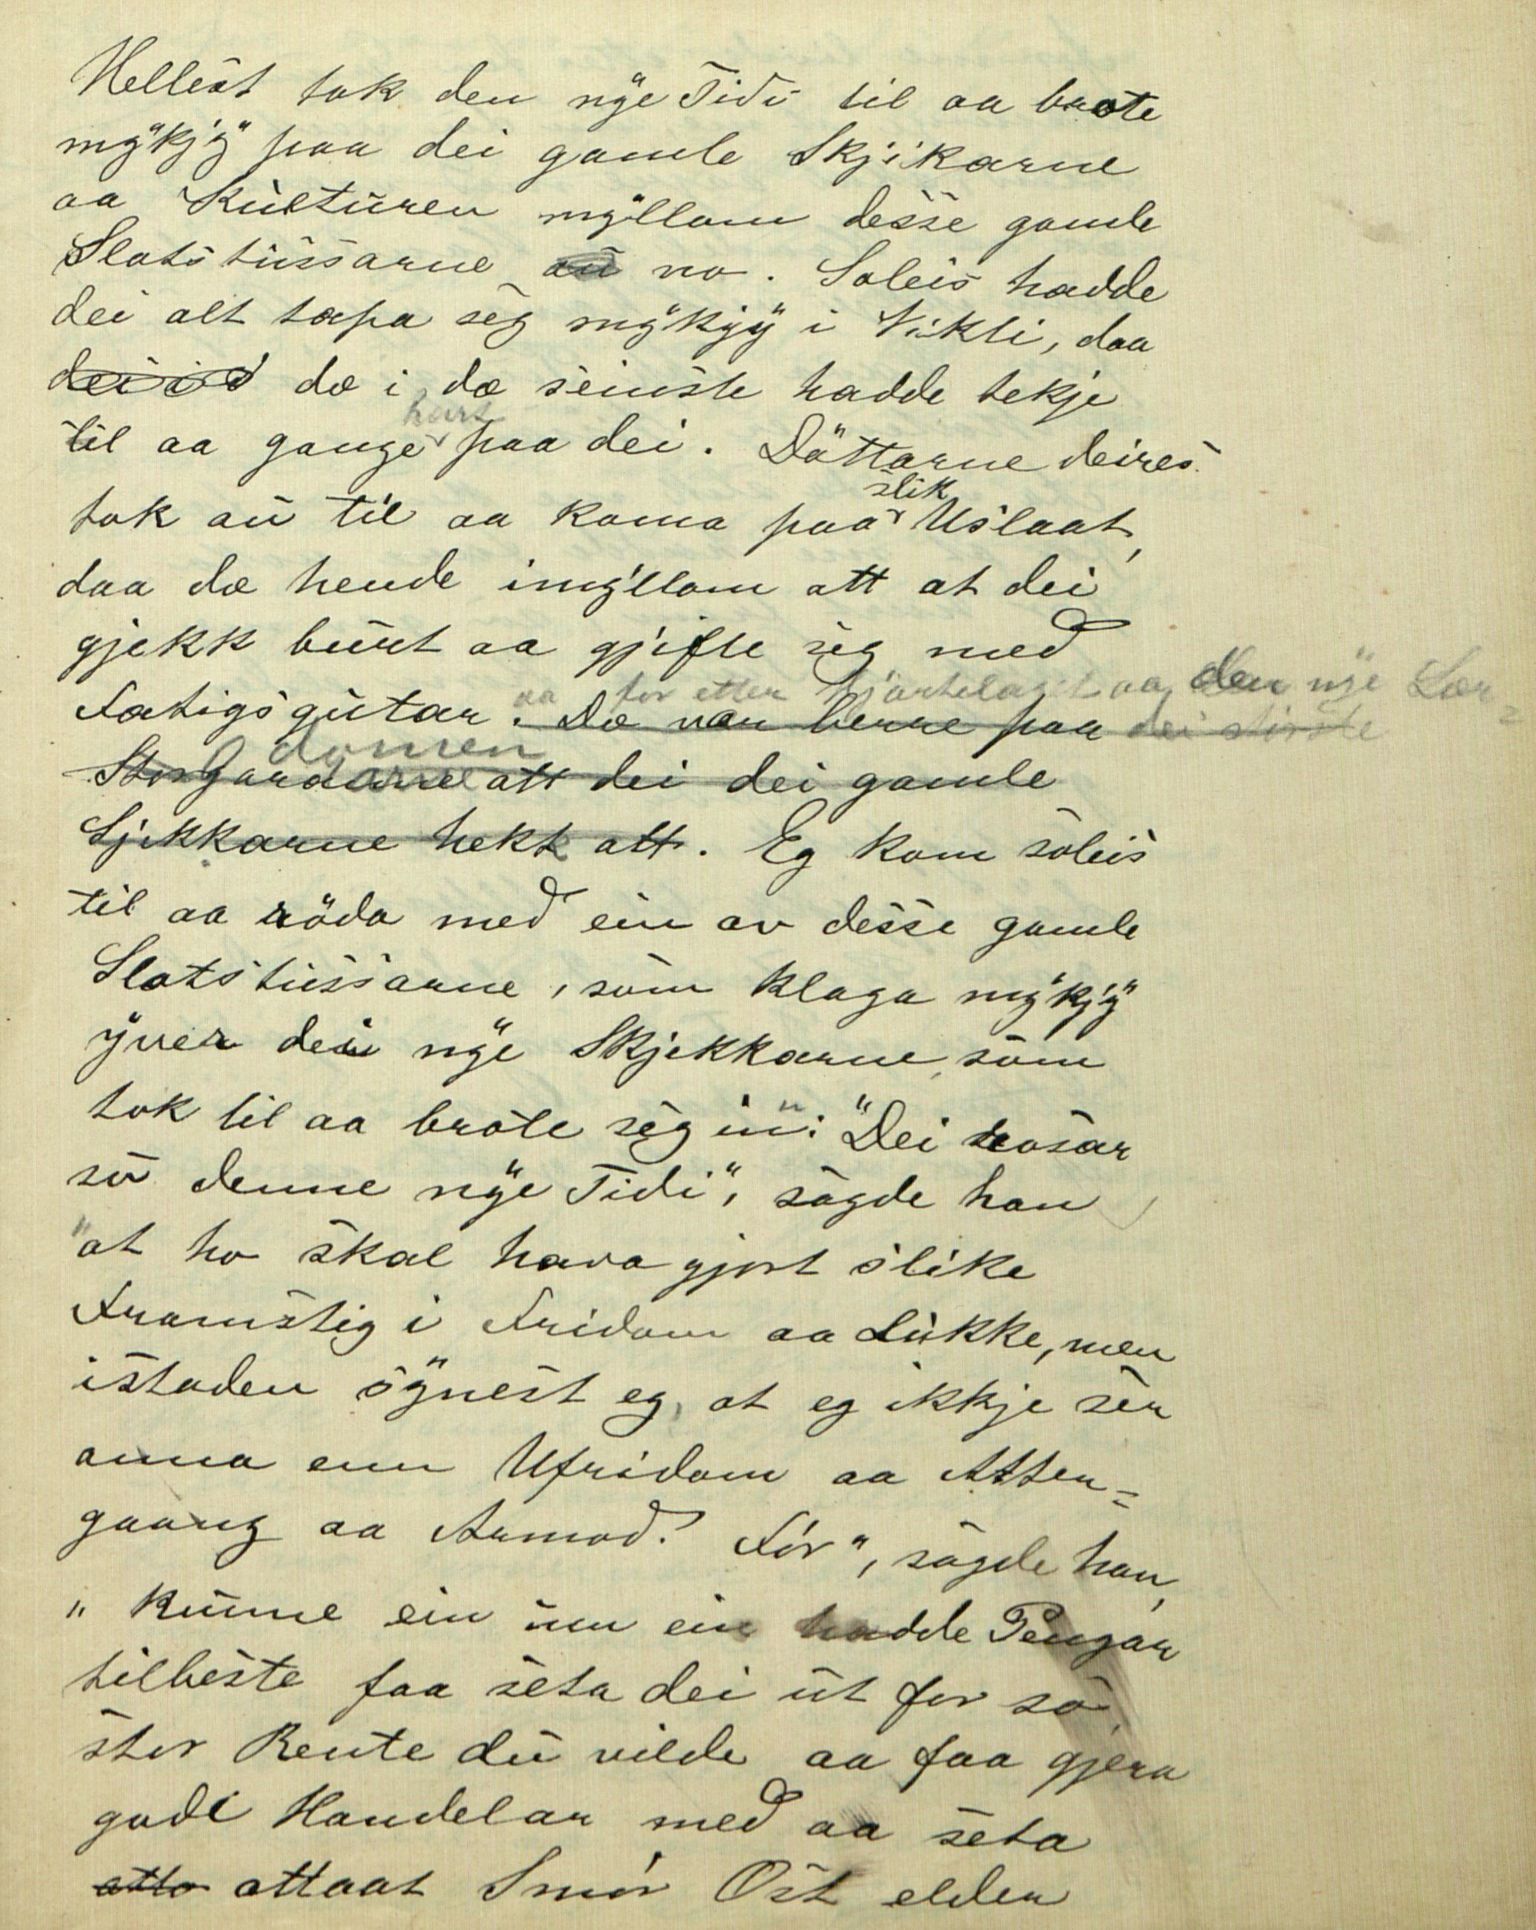 Hellest tok den nÿe Tidi til aa brote
mÿkjÿ paa dei gamle Skjikarne
aa Kulturen mÿllom desse gamle
Slotstussarne au no. Soleis hadde
dei alt tapa seg mÿkjÿ i Vikti, daa
dæ i dæ seinste hadde tekje
hart
til aa gange paa dei. Döttarne deires
slik
tok au til aa koma paa Uslaat,
daa dæ hende imÿllom att at dei
gjekk burt aa gjifte seg med
aa for etter Hjartelaget aa den nÿe Lær-
Fatigsgutar. Dæ var berre paa dei største
domen
StorGardarne att dei dei gamle
Sjikkarne hekk att. Eg kom soleis
til aa röda med ein av desse gamle
Slotstussarne, som klaga mÿkjÿ
ÿver dei nÿe Skjekkarne, som
tok til aa brote seg in": "Dei rosar
so denne nÿe Tidi", sagde han
"at ho skal hava gjort slike
Framstig i Fridom aa Lukke, men
istaden sÿnest eg, at eg ikkje ser
anna enn Ufridom aa Atter=
gaang aa Armod. Før", sagde han,
"kunne ein um ein hadde Pengar
tilbeste faa seta dei ut for so
stor Rente du vilde aa faa gjera
gode Handelar med aa seta
atto attaat Smør Ost elder